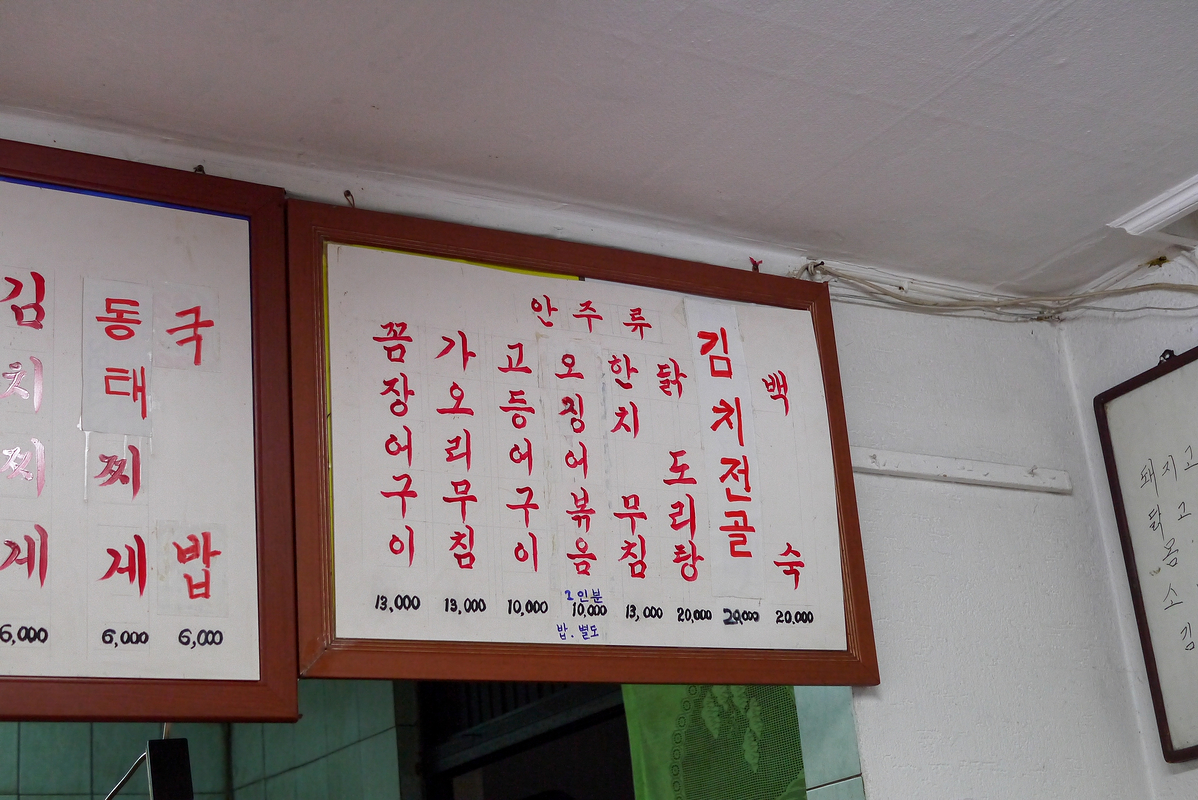 김치찌게
6,000
동태찌게
6,000
국밥
6,000
안주류
꼼장어구이
13,000
가오리무침
13,000
고등어구이
10,000
오징어볶음
2인분
10,000
밥.별도
한치무침
13,000
닭도리탕
20,000
김치전골
20,000
백숙
20,000